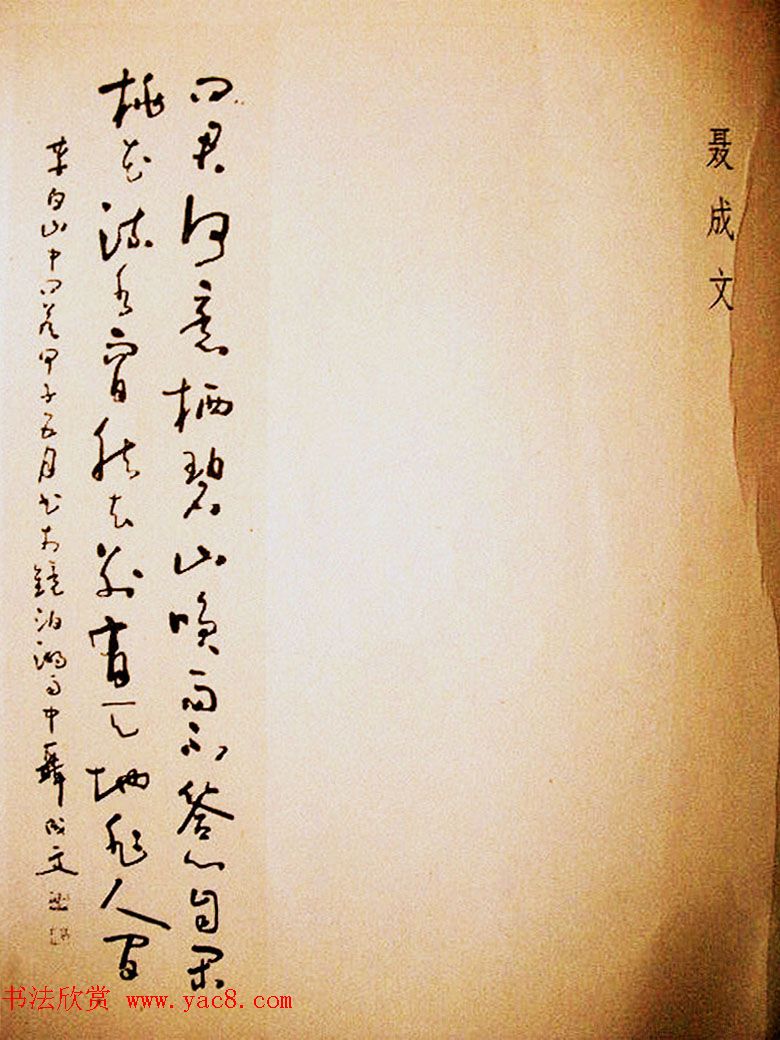 聂成文
问君何意栖碧山咲而不答心自闲
桃花流水窅然去别有天地非人间
李白山中问答甲子五月书于鏡泊湖雨中聶成文
书法欣赏 www.yac8.com